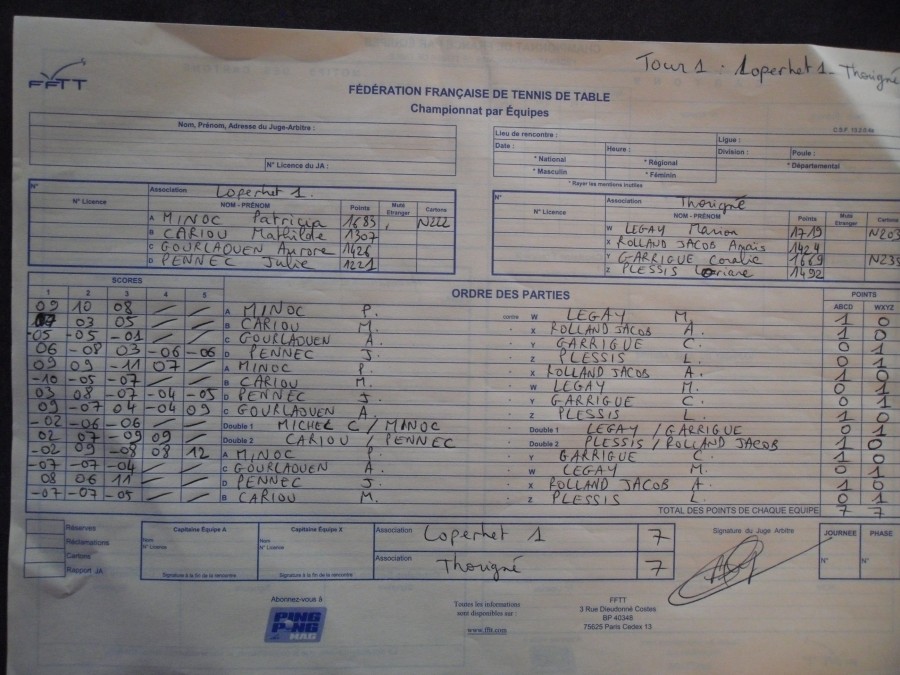 Tour 1 : Loperhet 1 - Thorigné
FFTT
FÉDÉRATION FRANÇAISE DE TENNIS DE TABLE
Championnat par Équipes
C.S.F. 13.2.0.4e
Nom, Prénom, Adresse du Juge-Arbitre :
N° Licence du JA :
Lieu de rencontre : Ligue :
Date : Heure : Division : Poule :
* National * Régional * Départemental
* Masculin * Féminin
* Rayer les mentions inutiles
N° Association Loperhet 1.
N° Licence NOM - PRÉNOM Points Muté Etranger Cartons
A MINOC Patricia 1683 N222
B CARIOU Mathilde 1307
C GOURLAOUEN Aurore 1426
D PENNEC Julie 1221
N° Association Thorigné
N° Licence NOM - PRÉNOM Points Muté Etranger Cartons
W LEGAY Marion 1719 N203
X ROLLAND JACOB Anaïs 1424
Y GARRIGUE Coralie 1669 N239
Z PLESSIS Loriane 1492
SCORES ORDRE DES PARTIES POINTS
1 2 3 4 5 ABCD WXYZ
09 10 08 / / A MINOC P. contre W LEGAY M. 1 0
07 03 05 / / B CARIOU M. X ROLLAND JACOB A. 1 0
-05 -05 -01 / / C GOURLAOUEN A. Y GARRIGUE C. 0 1
06 -08 03 -06 -06 D PENNEC J. Z PLESSIS L. 0 1
09 09 -11 07 / A MINOC P. X ROLLAND JACOB A. 1 0
-10 -05 -07 / / B CARIOU M. W LEGAY M. 0 1
03 08 -07 -04 -05 D PENNEC J. Y GARRIGUE C. 0 1
09 -07 04 -04 09 C GOURLAOUEN A. Z PLESSIS L. 1 0
-02 -06 -06 / / Double 1 MICHEL C / MINOC Double 1 LEGAY / GARRIGUE 0 1
02 07 -09 09 / Double 2 CARIOU / PENNEC Double 2 PLESSIS / ROLLAND JACOB 1 0
-02 09 -08 08 12 A MINOC P. Y GARRIGUE C. 1 0
-07 -07 -04 / / C GOURLAOUEN A. W LEGAY M. 0 1
08 06 11 / / D PENNEC J. X ROLLAND JACOB A. 1 0
-07 -07 -05 / / B CARIOU M. Z PLESSIS L. 0 1
TOTAL DES POINTS DE CHAQUE EQUIPE 7 7
Réserves
Réclamations
Cartons
Rapport JA
Capitaine Équipe A
Nom
N° Licence
Signature à la fin de la rencontre
Capitaine Équipe X
Nom
N° Licence
Signature à la fin de la rencontre
Association Loperhet 1 7
Association Thorigné 7
Signature du Juge Arbitre
JOURNEE PHASE
N° N°
Abonnez-vous à
PING PONG MAG
Toutes les informations
sont disponibles sur :
www.fftt.com
FFTT
3 Rue Dieudonné Costes
BP 40348
75625 Paris Cedex 13